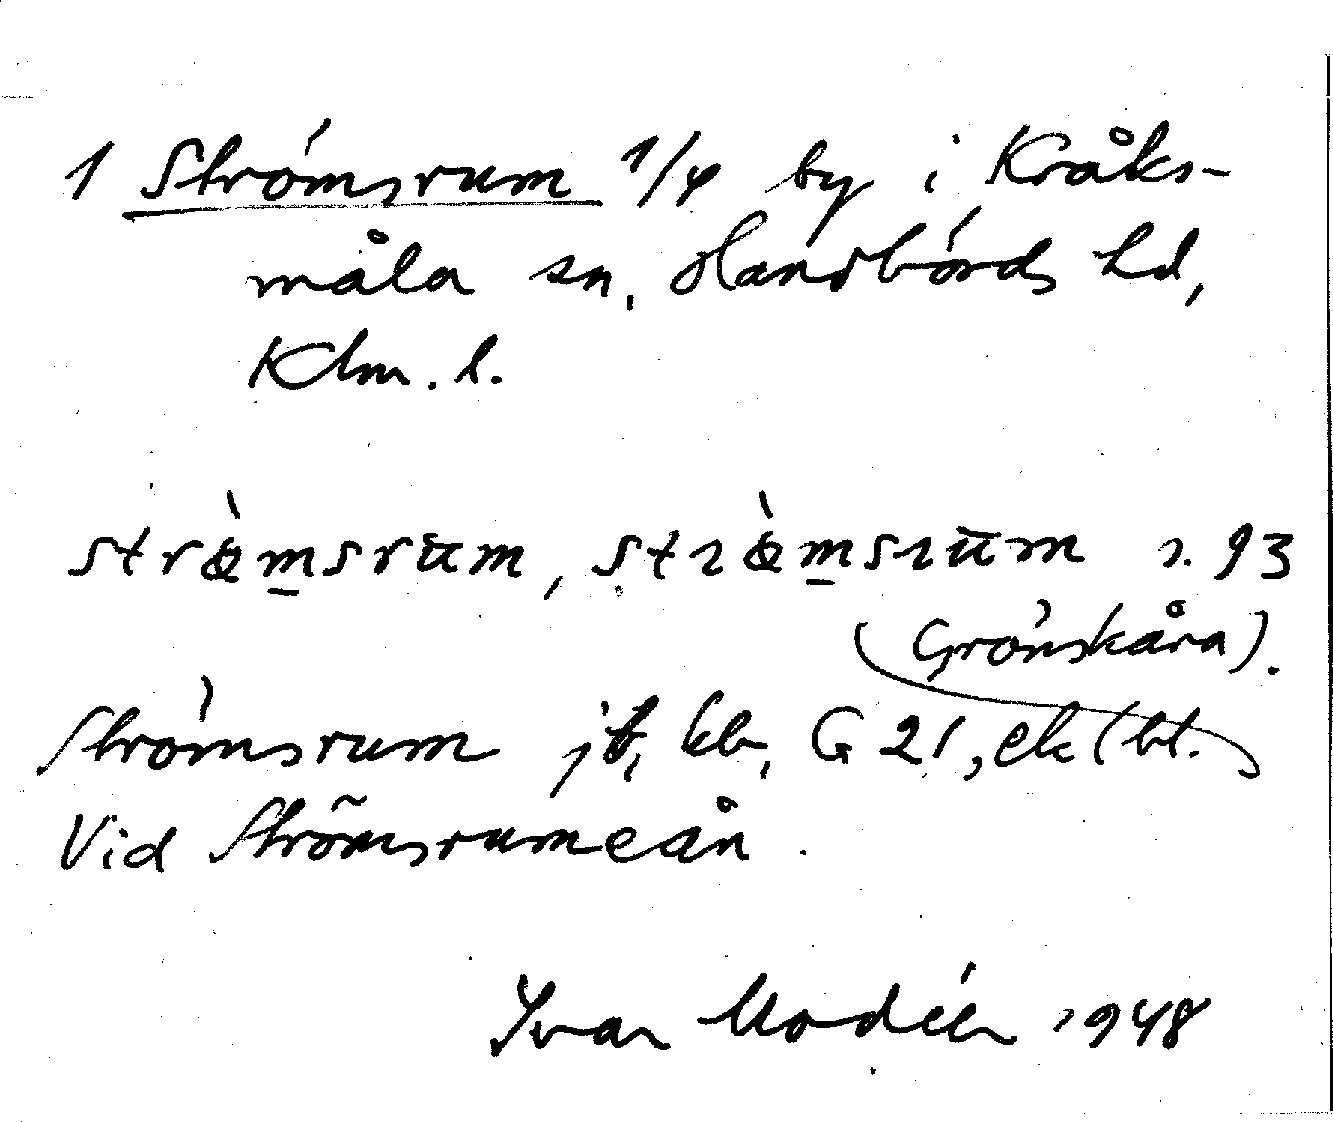 1 Strömsrum 1/4 by i Kråks-
måla sn, Handbörds hd,
Klm. l.
strœ̀msrūm, strœ̀msrūm r. 93
(Grönskåra).
Strömsrum jb, kb, G 21, ek (bl.
Vid Strömsrumeån.
Ivar Modéer 1948